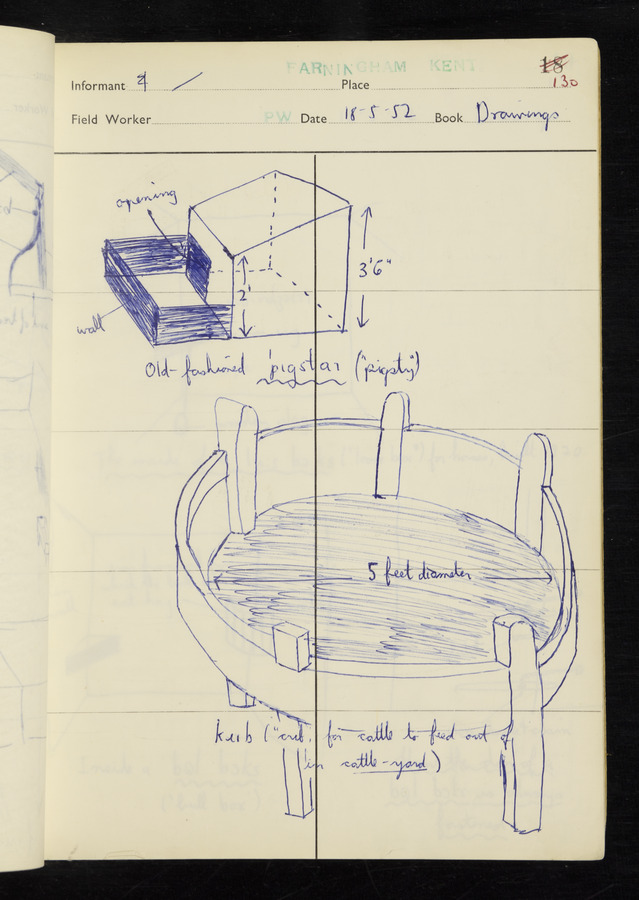 FARNINGHAM KENT
18
130
Informant 4 / Place
Field Worker PW Date 18-5-52 Book Drawings
opening
3'6"
2'
wall
Old-fashioned pigstaɪ ("pigsty")
5 feet diameter
kɪɪb ("crib, for cattle to feed out of
in cattle-yard)